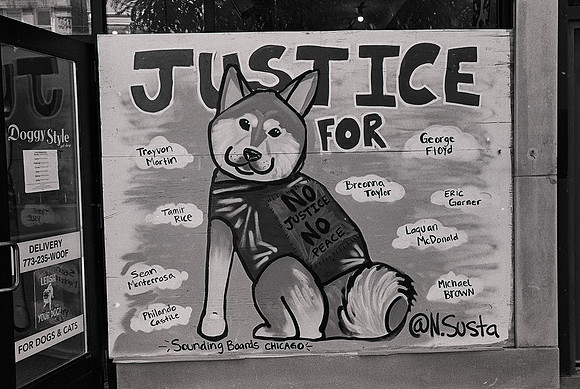 JUSTICE
FOR
Trayvon
Martin
George
Floyd
Breonna
Taylor
ERIC
Garner
Tamir
Rice
Laquan
McDonald
Sean
Monterrosa
Michael
BROWN
Philando
Castile
NO
JUSTICE
NO
PEACE
@N.Susta
Sounding Boards CHICAGO
Doggy Style
DELIVERY
773-235-WOOF
FOR DOGS & CATS